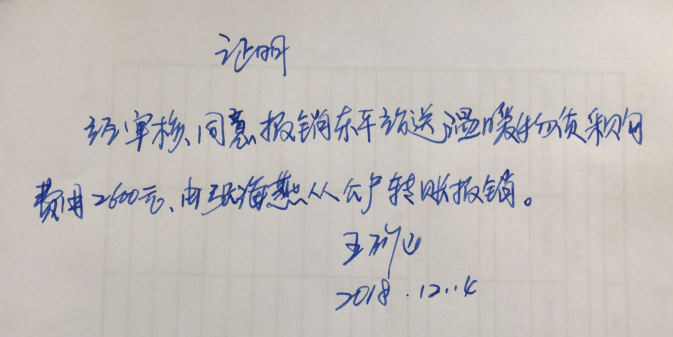 证明
经审核、同意报销东平站送温暖物资采购
费用2600元、由张海燕从公户转账报销。
王
2018.12.4